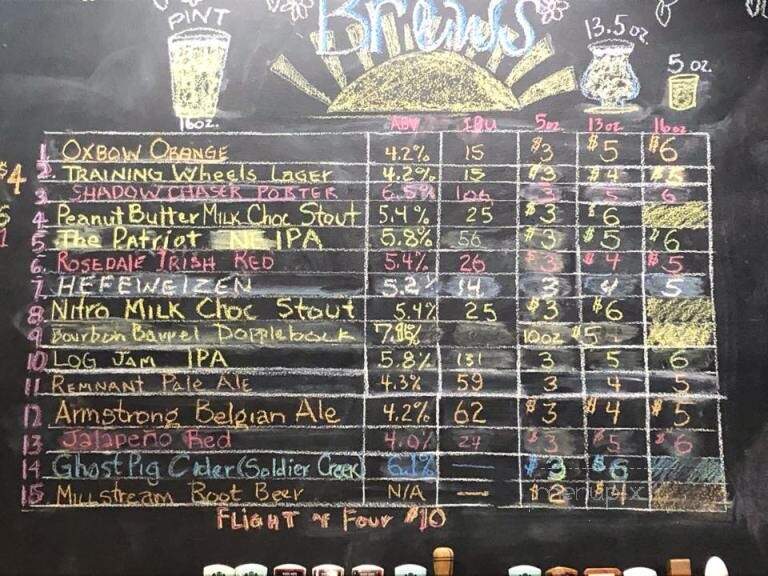 Brews
PINT
16oz.
13.5oz.
5oz.
ABV IBU 5oz 13oz 16oz
1. OXBOW ORANGE 4.2% 15 $3 $5 $6
2. TRAINING Wheels LAGER 4.2% 15 $3 $4 $5
3. SHADOW CHASER PORTER 6.5% 3 5 6
4. Peanut Butter MILK Choc Stout 5.4% 25 $3 $6
5. The Patriot NE IPA 5.8% 56 $3 $5 $6
6. ROSEDALE IRISH RED 5.4% 26 $3 $4 $5
7. HEFEWEIZEN 5.2% 14 3 4 5
8. Nitro MILK Choc Stout 5.4% 25 $3 $6
9 Bourbon Barrel Dopplebock 10oz $5
10. LOG JAM IPA 5.8% 131 3 5 6
11 REMNANT Pale Ale 4.3% 59 3 4 5
12 Armstrong Belgian Ale 4.2% 62 $3 $4 $5
13 Jalapeño Red 4.0% 24 $3 $5 $6
14 Ghost Pig Cider (Soldier Creek) 6.1% — $3 $6
15 Millstream Root Beer N/A — $2
FLIGHT of Four $10
$4
menupix